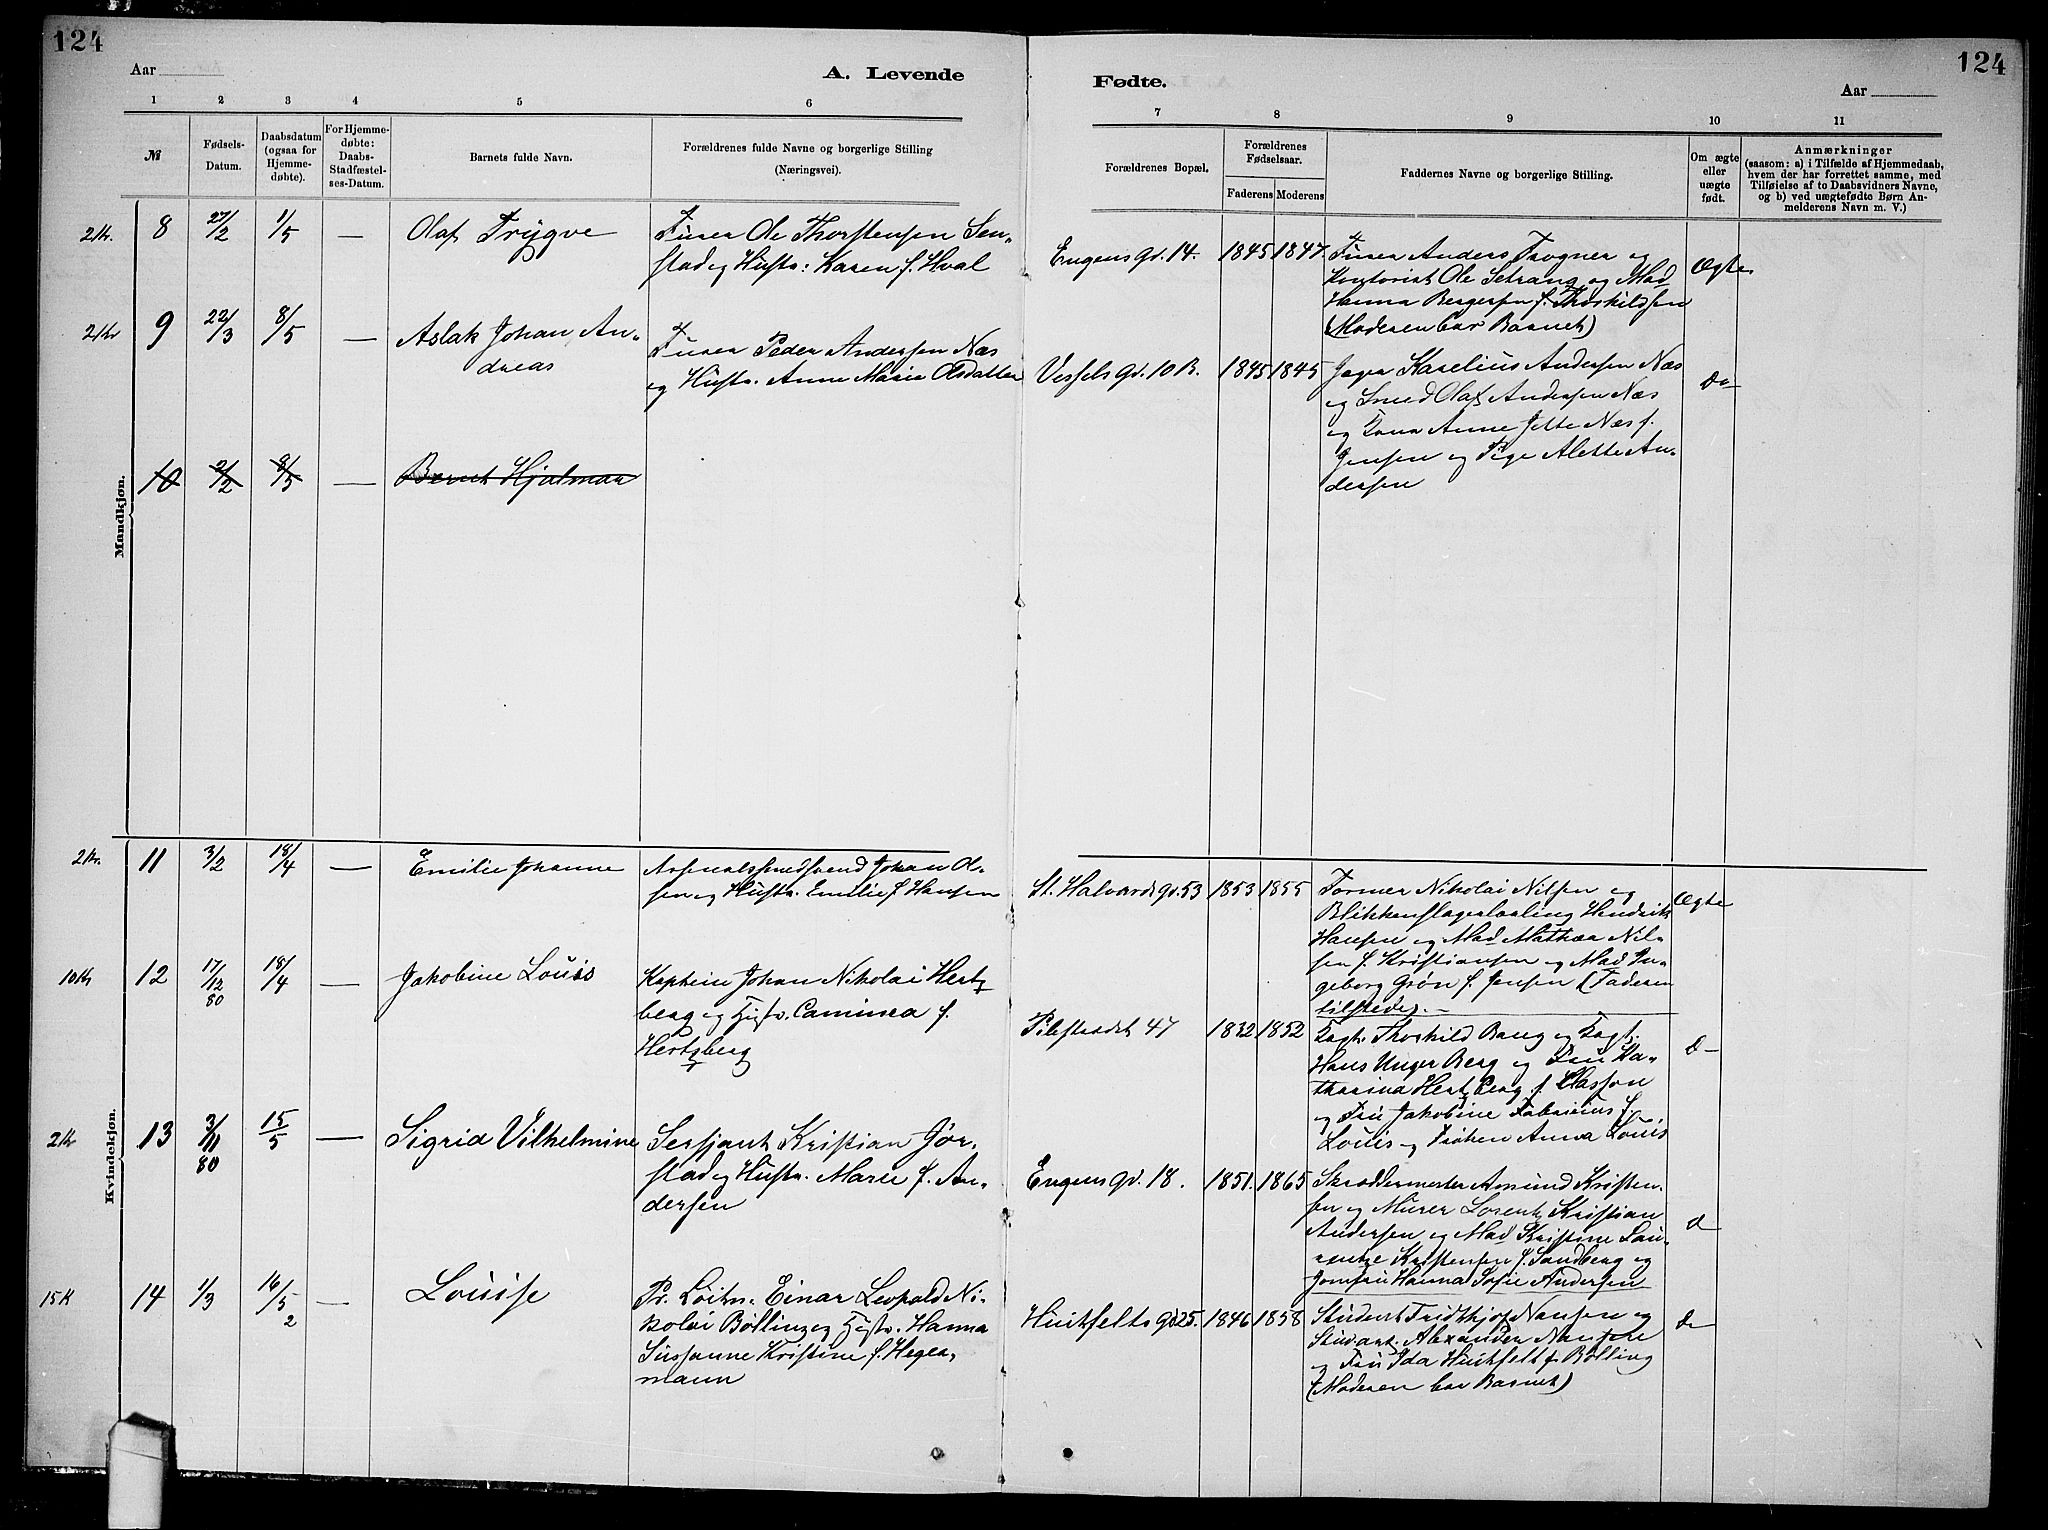 124
124
Aar
A. Levende
Fødte.
Aar
1 2 3 4 5 6 7 8 9 10 11
№
Fødsels-
Datum.
Daabsdatum
(ogsaa for
Hjemme-
døbte).
For Hjemme-
døbte:
Daabs-
Stadfæstel-
ses-Datum.
Barnets fulde Navn.
Forældrenes fulde Navne og borgerlige Stilling
(Næringsvei).
Forældrenes Bopæl.
Forældrenes
Fødselsaar.
Faderens Moderens
Faddernes Navne og borgerlige Stilling.
Om ægte
eller
uægte
født.
Anmærkninger
(saasom: a) i Tilfælde af Hjemmedaab,
hvem der har forrettet samme, med
Tilføielse af to Daabsvidners Navne,
og b) ved uægtefødte Børn An-
melderens Navn m. V.)
Mandkjøn.
2 Kr. 8 27/2 1/5 — Olaf Trygve
Furer Ole Thorstensen Sen-
stad og Hustr: Karen f. Hval
Engens gd. 14. 1845 1847.
Furer Anders Trogner og
Kontorist Ole Setrang og Mad
Hanna Bergersen f. Thorkildsen
(Moderen bar Barnet)
Ægte
2 Kr 9 22/3 8/5 — Aslak Johan An-
dreas
Furer Peder Andersen Næs
og Hustr. Anne Marie Olsdatter
Vessels gd. 10 B. 1845 1845
Jæger Karelius Andersen Næs
og Smed Olaf Andersen Næs
og Kona Anne Jette Næs f.
Jensen og Pige Alette An-
dersen
do
10 2/2 8/5 — Bernt Hjalmar
Kvindekjøn.
2 Kr. 11 3/2 18/4 — Emilie Johanne
Arsenalssmedsvend Johan Ol-
sen og Hustr. Emilie f. Hansen
St. Halvards gd. 53 1853 1855
Former Nikolai Nilsen og
Blikkenslagerlærling Hendrik
Hansen og Mad Mathea Nil-
sen f. Kristiansen og Mad In-
geborg Grøn f. Jensen (Faderen
tilstede). —
Ægte
10 Kr 12 17/12 80 18/4 — Jakobine Louis
Kaptein Johan Nikolai Hertz
berg og Hustr. Caminea f.
Hertzberg
Pilestrædet 47 1832 1852
Kapt. Thorkild Bang og Kapt.
Hans Unger Berg og Fru Ka-
tharina Hertzberg f. Classon
og Fru Jakobine Fabricius f.
Louis og Frøken Anna Louis
d—
2 Kr 13 3/11 80 15/5 — Sigrid Vilhelmine
Sersjant Kristian Jør-
stad og Hustr. Marie f. An-
dersen
Engens gd. 18. 1851. 1865
Skræddermester Amund Kristen-
sen og Murer Lorentz Kristian
Andersen og Mad Kristine Lau-
rentze Kristensen f. Sandberg og
Jomfru Hanna Sofie Andersen
d
15 K 14 1/3 16/5 2 — Louise
Pr. Løitn. Einar Leopold Ni-
kolai Bølling og Hustr. Hanna
Sussanne Kristine f. Heger-
mann
Huitfelts gd 25. 1846 1858
Student Fridthjof Nansen og
Student Alexander Nansen
og Fru Ida Huitfelt f. Bølling
(Moderen bar Barnet)
do